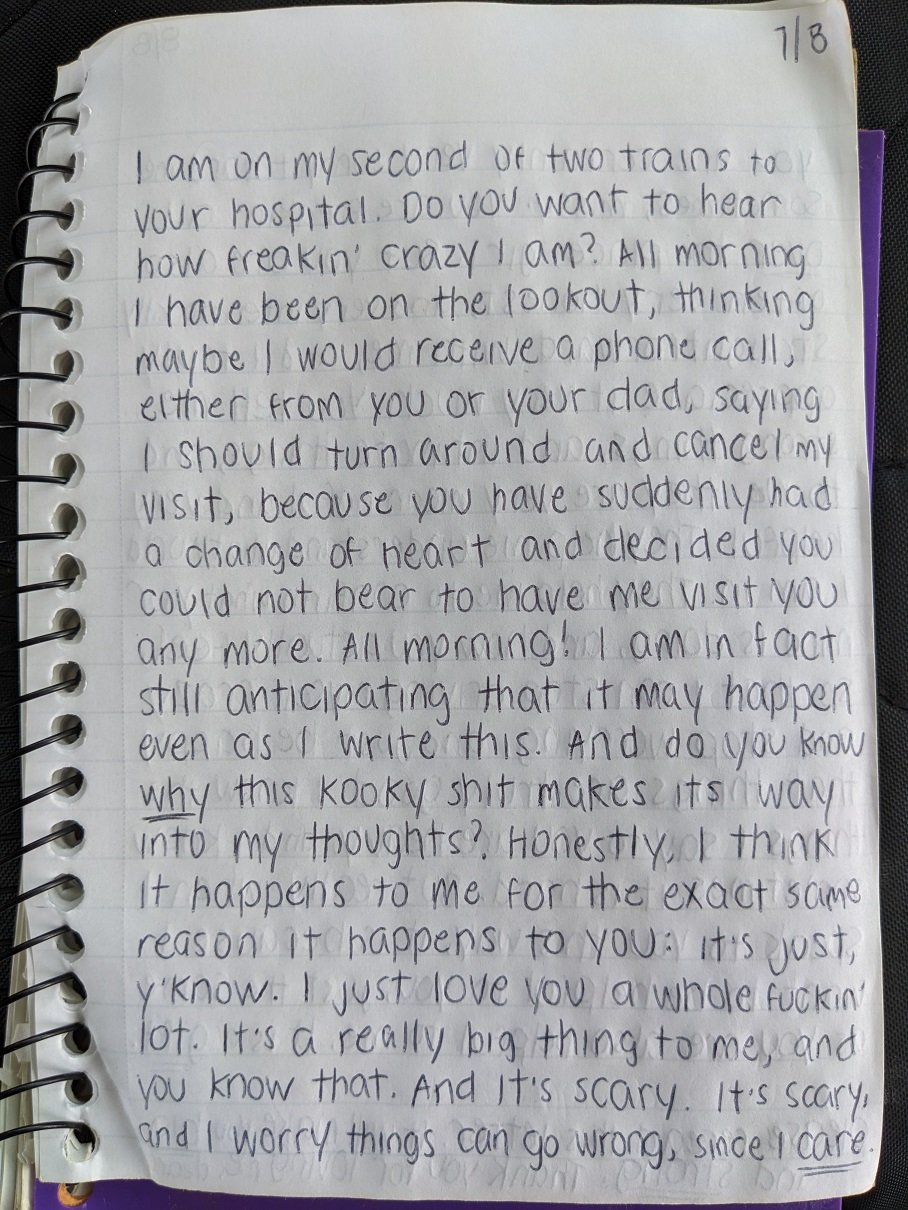 7/8
I am on my second of two trains to
your hospital. Do you want to hear
how freakin' crazy I am? All morning
I have been on the lookout, thinking
maybe I would receive a phone call,
either from you or your dad, saying
I should turn around and cancel my
visit, because you have suddenly had
a change of heart and decided you
could not bear to have me visit you
any more. All morning! I am in fact
still anticipating that it may happen
even as I write this. And do you know
why this kooky shit makes its way
into my thoughts? Honestly, I think
it happens to me for the exact same
reason it happens to you: it's just,
y'know. I just love you a whole fuckin'
lot. It's a really big thing to me, and
you know that. And it's scary. It's scary,
and I worry things can go wrong, since I care.